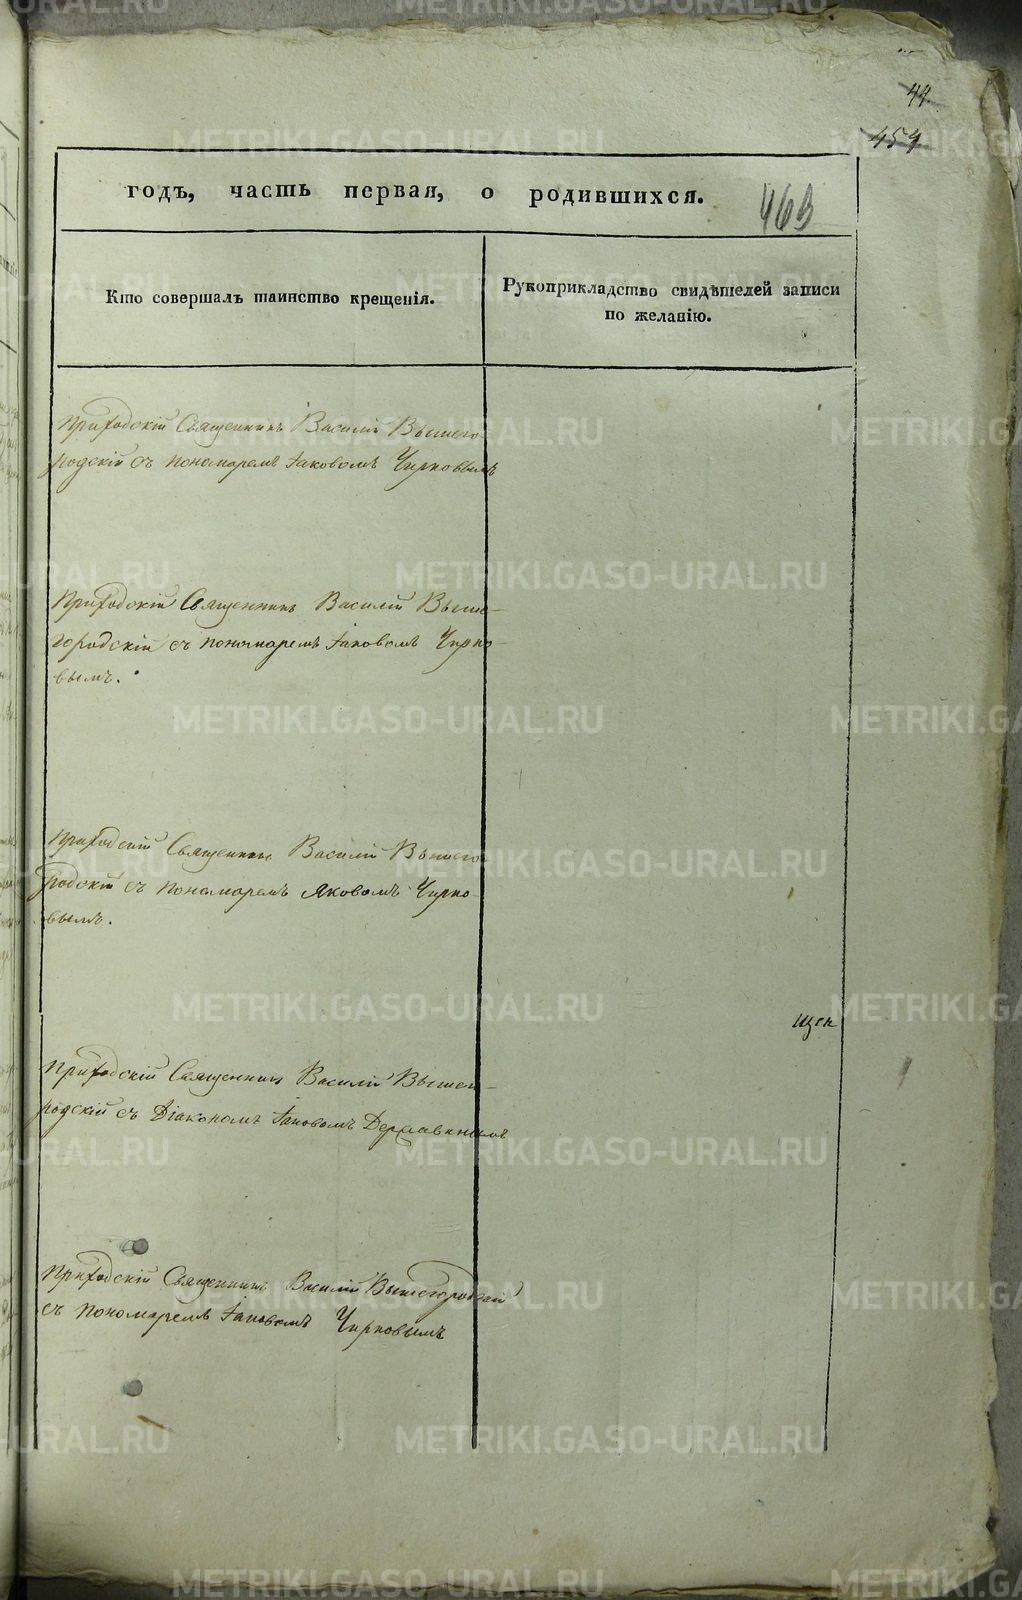 44.
454
годъ, часть первая, о родившихся.
463
Кто совершалъ таинство крещенія.
Рукоприкладство свидѣтелей записи
по желанію.
Приходскій Священникъ Василій Вышего
родскій съ пономаремъ Іаковомъ Чирковымъ
Приходскій Священникъ Василій Выше-
городскій съ пономаремъ Іаковомъ Чирко
вымъ.
Приходскій Священникъ Василій Вышего
родскій съ пономаремъ Яковомъ Чирко
вымъ.
Приходскій Священникъ Василій Вышего-
родскій съ Діакономъ Іаковомъ Державинымъ
Приходскій Священникъ Василій Вышегородскій
съ пономаремъ Іаковомъ Чирковымъ
METRIKI.GASO-URAL.RU